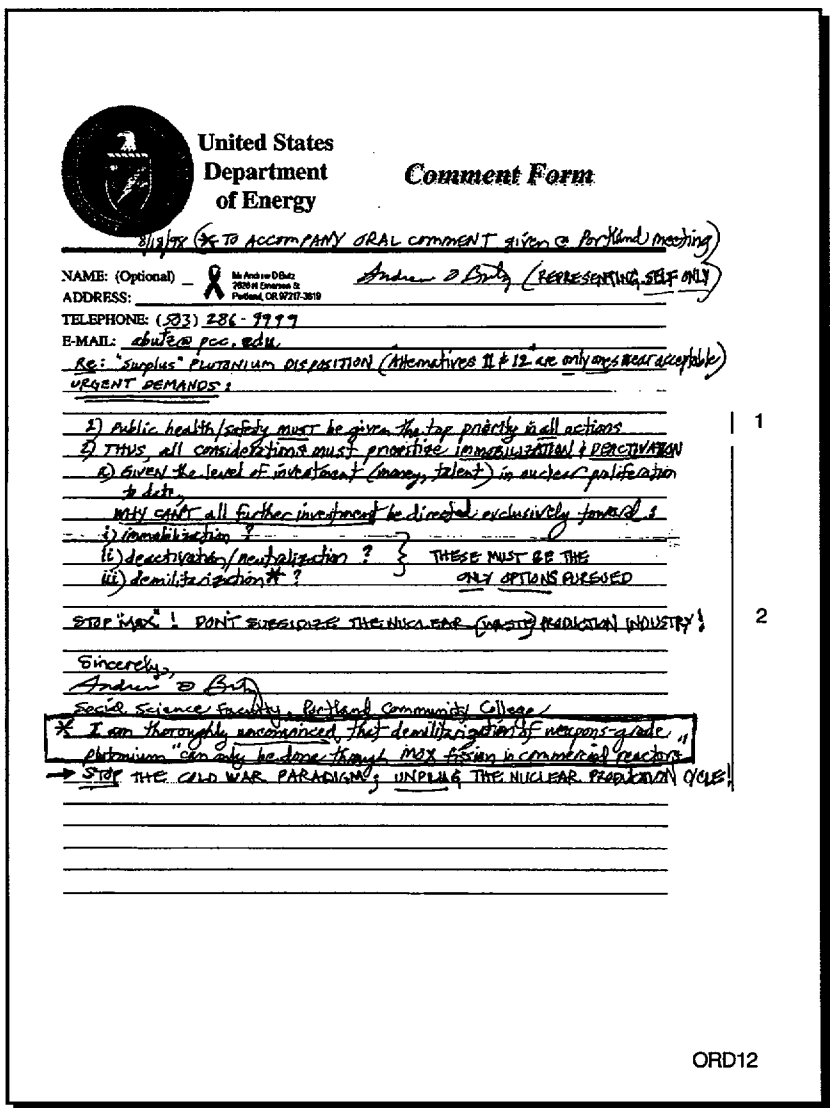 United States
Department
of Energy
Comment Form
8/18/98 (* TO ACCOMPANY ORAL COMMENT given @ Portland meeting)
NAME: (Optional) Mr Andrew D Butz Andrew D Butz (REPRESENTING SELF ONLY)
2626 N Emerson St
ADDRESS: Portland, OR 97217-3619
TELEPHONE: (503) 286-9999
E-MAIL: abutz@pcc.edu
Re: "Surplus" PLUTONIUM DISPOSITION (Alternatives 11 & 12 are only ones near acceptable)
URGENT DEMANDS:
1) Public health/safety must be given the top priority in all actions
1
2) THUS, all considerations must prioritize IMMOBILIZATION & DEACTIVATION
a) GIVEN the level of investment (money, talent) in nuclear proliferation
to date,
WHY CAN'T all further investment be directed exclusively toward:
i) immobilization ?
ii) deactivation/neutralization ? } THESE MUST BE THE
iii) demilitarization* ? ONLY OPTIONS PURSUED
STOP "MOX"! DON'T SUBSIDIZE THE NUCLEAR (WASTE) PRODUCTION INDUSTRY!
2
Sincerely,
Andrew D Butz
Social Science Faculty, Portland Community College
* I am thoroughly unconvinced that demilitarization of weapons-grade
plutonium "can only be done through MOX fission in commercial reactors"
→ STOP THE COLD WAR PARADIGM; UNPLUG THE NUCLEAR PRODUCTION CYCLE!
ORD12